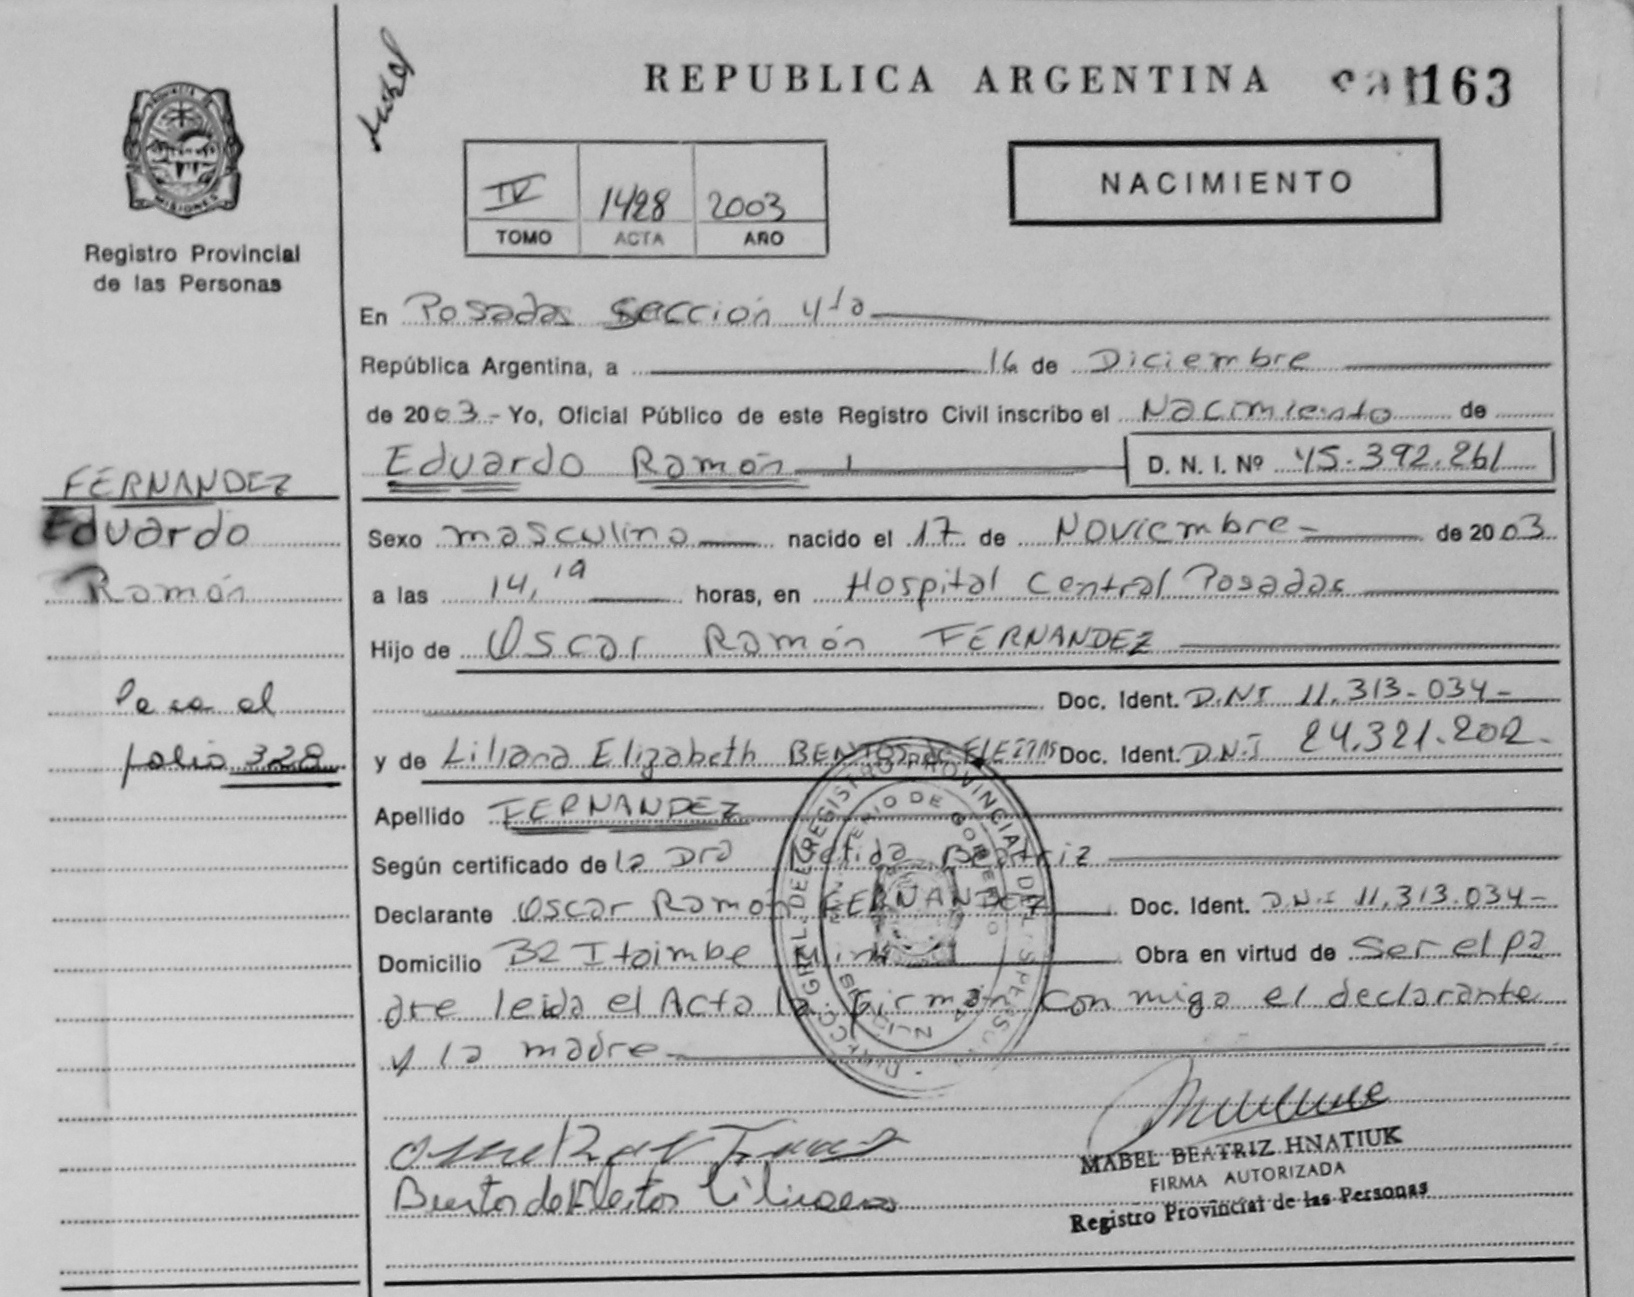 REPUBLICA ARGENTINA 163
PROVINCIA DE MISIONES
Registro Provincial
de las Personas
NACIMIENTO
IV 1428 2003
TOMO ACTA AÑO
En Posadas Sección 4ta
República Argentina, a 16 de Diciembre
de 2003.- Yo, Oficial Público de este Registro Civil inscribo el Nacimiento de
Eduardo Ramón D. N. I. Nº 45.392.261
FERNANDEZ
Eduardo
Ramón
Pasa al
folio 328
Sexo masculino nacido el 17 de Noviembre de 2003
a las 14,19 horas, en Hospital Central Posadas
Hijo de Oscar Ramón FERNANDEZ
Doc. Ident. D.NI 11.313.034
y de Liliana Elizabeth BENITOS de Doc. Ident. D.N.I 24.321.202
Apellido FERNANDEZ
Según certificado de la Dra Beatriz
Declarante Oscar Ramón FERNANDEZ Doc. Ident. D.N.I 11.313.034
Domicilio B2 Itaimbe mini Obra en virtud de Ser el pa
dre leida el Acta la firman conmigo el declarante
y la madre
MABEL BEATRIZ HNATIUK
FIRMA AUTORIZADA
Registro Provincial de las Personas